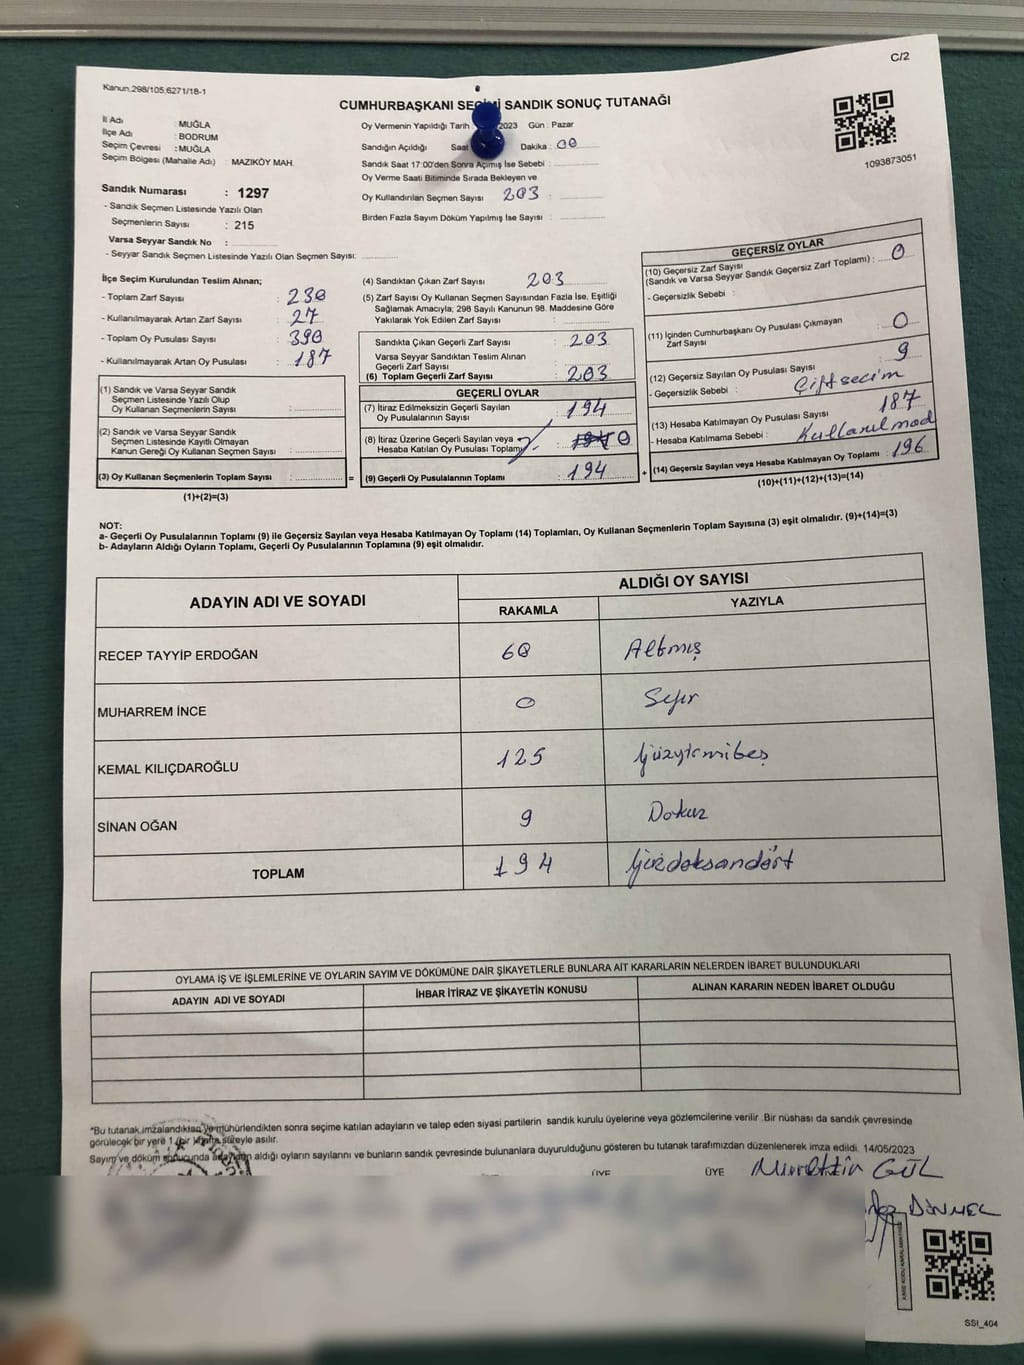 C/2
Kanun,298/105;6271/18-1
CUMHURBAŞKANI SEÇİMİ SANDIK SONUÇ TUTANAĞI
İl Adı : MUĞLA
İlçe Adı : BODRUM
Seçim Çevresi : MUĞLA
Seçim Bölgesi (Mahalle Adı) : MAZIKÖY MAH.
Sandık Numarası : 1297
- Sandık Seçmen Listesinde Yazılı Olan
Seçmenlerin Sayısı : 215
Varsa Seyyar Sandık No :
- Seyyar Sandık Seçmen Listesinde Yazılı Olan Seçmen Sayısı:
Oy Vermenin Yapıldığı Tarih 2023 Gün : Pazar
Sandığın Açıldığı Saat Dakika : 00
Sandık Saat 17:00'den Sonra Açılmış İse Sebebi :
Oy Verme Saati Bitiminde Sırada Bekleyen ve
Oy Kullandırılan Seçmen Sayısı : 203
Birden Fazla Sayım Döküm Yapılmış İse Sayısı :
1093873051
İlçe Seçim Kurulundan Teslim Alınan;
- Toplam Zarf Sayısı : 230
- Kullanılmayarak Artan Zarf Sayısı : 27
- Toplam Oy Pusulası Sayısı : 390
- Kullanılmayarak Artan Oy Pusulası : 187
(1) Sandık ve Varsa Seyyar Sandık
Seçmen Listesinde Yazılı Olup
Oy Kullanan Seçmenlerin Sayısı :
(2) Sandık ve Varsa Seyyar Sandık
Seçmen Listesinde Kayıtlı Olmayan
Kanun Gereği Oy Kullanan Seçmen Sayısı :
(3) Oy Kullanan Seçmenlerin Toplam Sayısı : =
(1)+(2)=(3)
(4) Sandıktan Çıkan Zarf Sayısı : 203
(5) Zarf Sayısı Oy Kullanan Seçmen Sayısından Fazla İse, Eşitliği
Sağlamak Amacıyla; 298 Sayılı Kanunun 98. Maddesine Göre
Yakılarak Yok Edilen Zarf Sayısı :
Sandıkta Çıkan Geçerli Zarf Sayısı : 203
Varsa Seyyar Sandıktan Teslim Alınan
Geçerli Zarf Sayısı :
(6) Toplam Geçerli Zarf Sayısı : 203
GEÇERLİ OYLAR
(7) İtiraz Edilmeksizin Geçerli Sayılan
Oy Pusulalarının Sayısı : 194
(8) İtiraz Üzerine Geçerli Sayılan veya
Hesaba Katılan Oy Pusulası Toplamı : 0
(9) Geçerli Oy Pusulalarının Toplamı : 194 +
GEÇERSİZ OYLAR
(10) Geçersiz Zarf Sayısı
(Sandık ve Varsa Seyyar Sandık Geçersiz Zarf Toplamı) : 0
- Geçersizlik Sebebi :
(11) İçinden Cumhurbaşkanı Oy Pusulası Çıkmayan
Zarf Sayısı : 0
(12) Geçersiz Sayılan Oy Pusulası Sayısı : 9
- Geçersizlik Sebebi : Çift seçim
(13) Hesaba Katılmayan Oy Pusulası Sayısı : 187
- Hesaba Katılmama Sebebi : Kullanılmad
(14) Geçersiz Sayılan veya Hesaba Katılmayan Oy Toplamı : 196
(10)+(11)+(12)+(13)=(14)
NOT:
a- Geçerli Oy Pusulalarının Toplamı (9) ile Geçersiz Sayılan veya Hesaba Katılmayan Oy Toplamı (14) Toplamları, Oy Kullanan Seçmenlerin Toplam Sayısına (3) eşit olmalıdır. (9)+(14)=(3)
b- Adayların Aldığı Oyların Toplamı, Geçerli Oy Pusulalarının Toplamına (9) eşit olmalıdır.
ADAYIN ADI VE SOYADI ALDIĞI OY SAYISI
RAKAMLA YAZIYLA
RECEP TAYYİP ERDOĞAN 60 Altmış
MUHARREM İNCE 0 Sıfır
KEMAL KILIÇDAROĞLU 125 Yüzyirmibeş
SİNAN OĞAN 9 Dokuz
TOPLAM 194 Yüzdoksandört
OYLAMA İŞ VE İŞLEMLERİNE VE OYLARIN SAYIM VE DÖKÜMÜNE DAİR ŞİKAYETLERLE BUNLARA AİT KARARLARIN NELERDEN İBARET BULUNDUKLARI
ADAYIN ADI VE SOYADI İHBAR İTİRAZ VE ŞİKAYETİN KONUSU ALINAN KARARIN NEDEN İBARET OLDUĞU
*Bu tutanak,imzalandıktan ve mühürlendikten sonra seçime katılan adayların ve talep eden siyasi partilerin sandık kurulu üyelerine veya gözlemcilerine verilir .Bir nüshası da sandık çevresinde
görülecek bir yere 1 (bir) hafta süreyle asılır.
Sayım ve döküm sonucunda adayların aldığı oyların sayılarını ve bunların sandık çevresinde bulunanlara duyurulduğunu gösteren bu tutanak tarafımızdan düzenlenerek imza edildi. 14/05/2023
ÜYE ÜYE Nurettin GÜL
DÖNMEZ
SSI_404